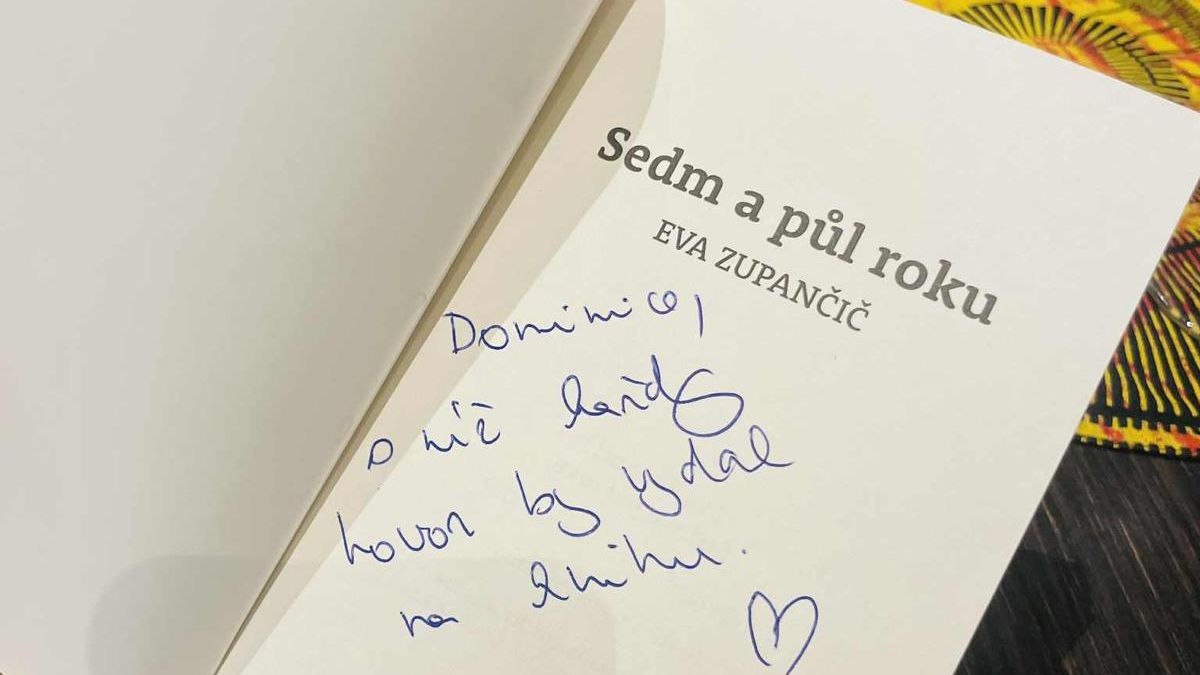 Sedm a půl roku
EVA ZUPANČIČ
Dominice,
o níž každý
hovor by vydal
na knihu.